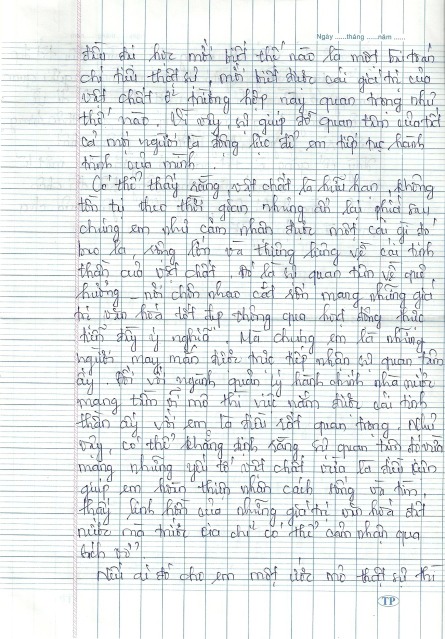 Ngày ......tháng ......năm ......
đến đi học mới biết thế nào là một bài toán
chi tiêu thật sự, mới biết được cái giá trị của
vật chất ở trường hợp này quan trọng như
thế nào. Vì vậy, sự giúp đỡ quan tâm của tất
cả mọi người là động lực để em tiếp tục hành
trình của mình.
Có thể thấy rằng, vật chất là hữu hạn, không
tồn tại theo thời gian nhưng đổi lại phía sau,
chúng em như cảm nhận được một cái gì đó
bao la, rộng lớn và thiêng liêng về cái tinh
thần của vật chất. Đó là sự quan tâm về quê
hương - nơi chôn nhau cắt rốn mang những giá
trị văn hóa tốt đẹp thông qua hoạt động thực
tiễn đầy ý nghĩa. Mà chúng em là những
người may mắn được trực tiếp nhận sự quan tâm
ấy. Đối với ngành quản lý hành chính nhà nước
mang tầm vĩ mô thì việc nắm được cái tinh
thần ấy với em là điều rất quan trọng. Như
vậy, có thể khẳng định rằng sự quan tâm đó vừa
mang những yếu tố vật chất vừa là điều kiện
giúp em hoàn thiện nhân cách sống và tìm
thấy linh hồn của những giá trị văn hóa đất
nước mà trước kia chỉ có thể cảm nhận qua
sách vở".
Nếu ai đó cho em một ước mơ thật sự thì
TP